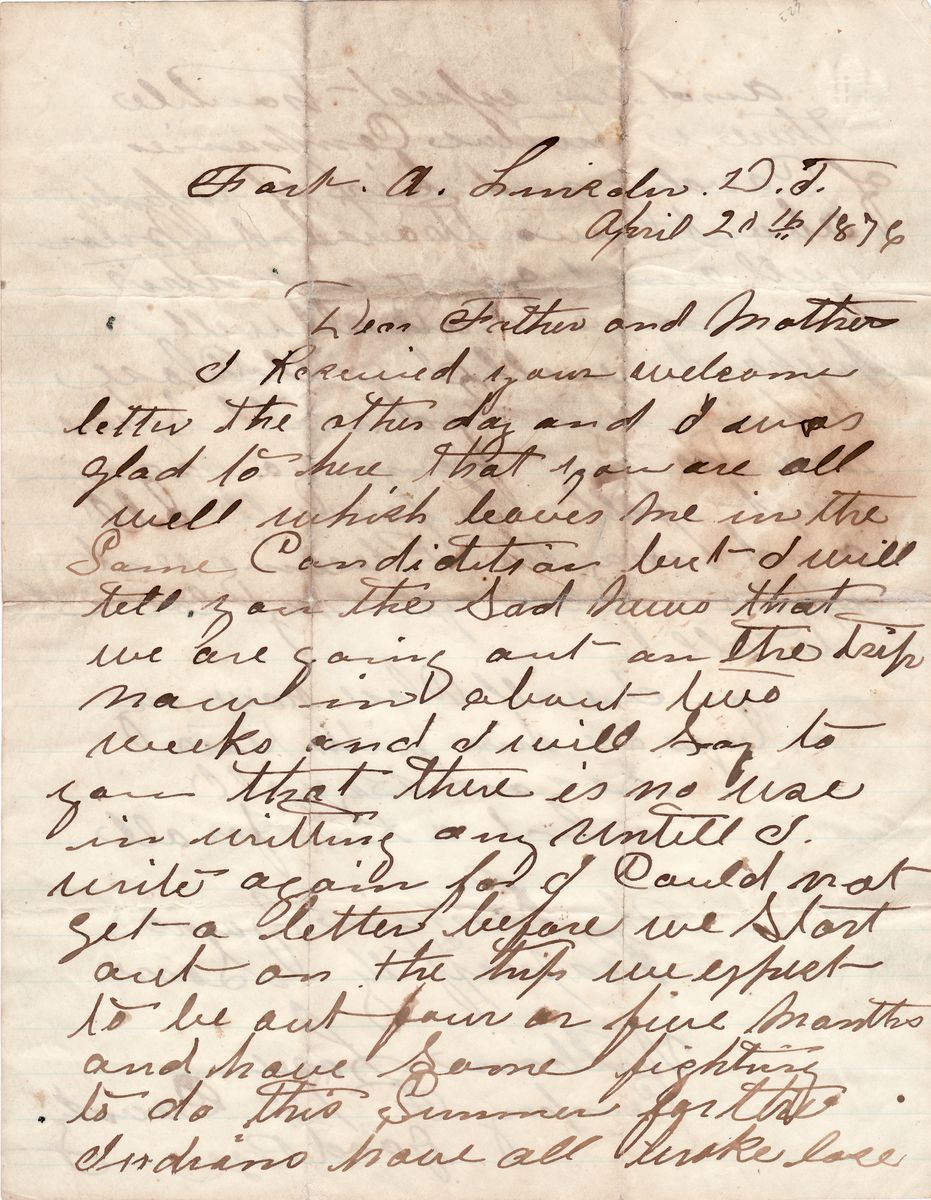 Fort. A. Lincoln. D. T.
April 2 th 1876
Dear Father and Mother
I Received your welcome
letter the other day and I was
glad to here that you are all
well which leaves me in the
Same Condidition but I will
tell you the Sad news that
we are going out on the trip
now in about two
weeks and I will Say to
you that there is no use
in writting any untill I.
write again for I Could not
get a letter before we Start
out on the trip we expect
to be out four or five Months
and have Some fighting
to do this Summer for the
Indians have all broke lose